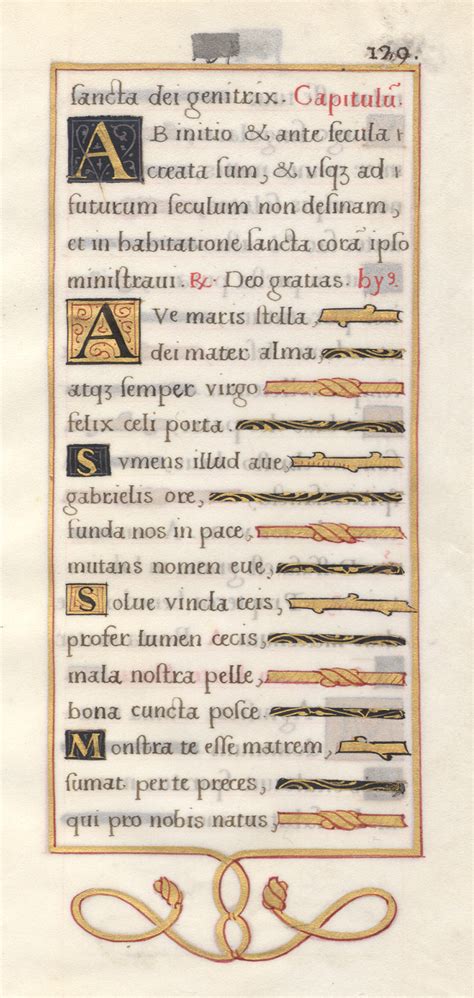 129.
sancta dei genitrix. Capitulū.
AB initio & ante secula
creata sum, & usqȝ ad
futurum seculum non desinam,
et in habitatione sancta corā ipso
ministraui. ℟. Deo gratias. hyꝰ.
AVe maris stella,
dei mater alma,
atqȝ semper virgo
felix celi porta.
Svmens illud aue,
gabrielis ore,
funda nos in pace,
mutans nomen eue,
Solue vincla reis,
profer lumen cecis,
mala nostra pelle,
bona cuncta posce.
Monstra te esse matrem,
sumat per te preces,
qui pro nobis natus,